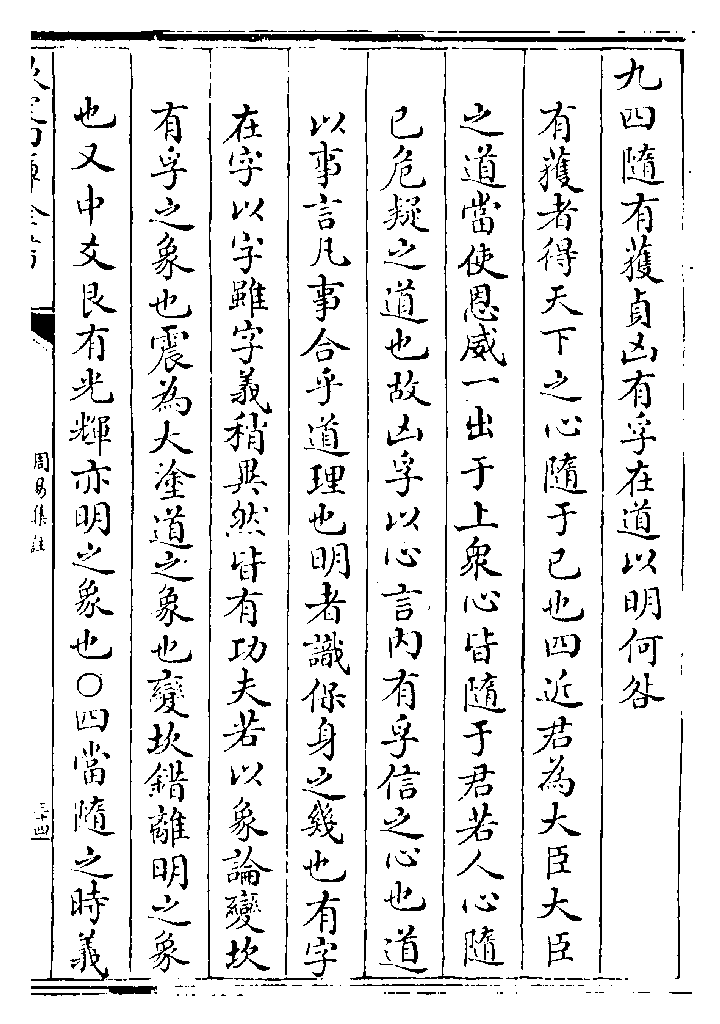 九四隨有獲貞凶有孚在道以明何咎
有獲者得天下之心隨于已也四近君為大臣大臣
之道當使恩威一出于上衆心皆隨于君若人心隨
已危疑之道也故凶孚以心言内有孚信之心也道
以事言凡事合乎道理也明者識保身之幾也有字
在字以字雖字義稍異然皆有功夫若以象論變坎
有孚之象也震為大塗道之象也變坎錯離明之象
也又中爻艮有光輝亦明之象也○四當隨之時義
周易集註
三十四